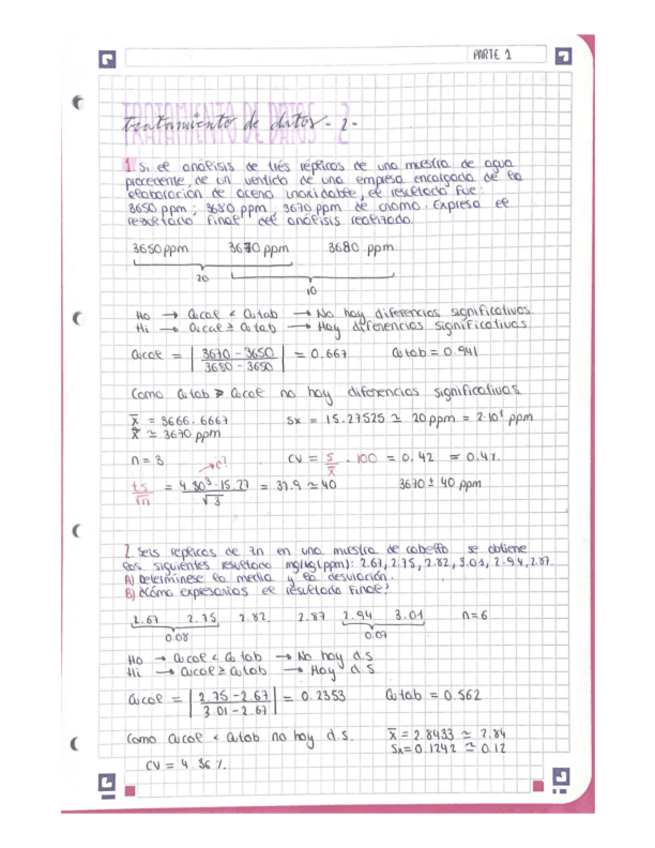 PARTE 1
TRATAMIENTO DE DATOS - 2
tratamiento de datos - 2 -
1. Si el análisis de trés réplicas de una muestra de agua
procedente de un vertido de una empresa encargada de la
elaboración de acero inoxidable, el resultado fue:
3650 ppm ; 3680 ppm ; 3670 ppm de cromo. Expresa el
resultado final del análisis realizado.
3650 ppm 3670 ppm 3680 ppm
20
10
Ho → Qcal < Qtab → No hay diferencias significativas
Hi → Qcal ≥ Qtab → Hay diferencias significativas
Qcal = | 3670 - 3650 / 3680 - 3650 | = 0.667 Qtab = 0.941
Como Qtab > Qcal no hay diferencias significativas.
x̄ = 3666.6667 Sx = 15.27525 ≃ 20 ppm = 2·10¹ ppm
x̄ ≃ 3670 ppm
n = 3 → c? CV = S / x̄ · 100 = 0.42 = 0.4%
ts / √n = 4.303 · 15.27 / √3 = 37.9 ≃ 40 3670 ± 40 ppm
2. Seis replicas de Zn en una muestra de cabello se obtiene
los siguientes resultado mg/kg (ppm): 2.67, 2.75, 2.82, 3.01, 2.94, 2.87.
A) Determínese la media y la desviación.
B) ¿Cómo expresarias el resultado final?
2.67 2.75 2.82 2.87 2.94 3.01 n = 6
0.08 0.07
Ho → Qcal < Qtab → No hay d.s
Hi → Qcal ≥ Qtab → Hay d.s
Qcal = | 2.75 - 2.67 / 3.01 - 2.67 | = 0.2353 Qtab = 0.562
Como Qcal < Qtab no hay d.s. x̄ = 2.8433 ≃ 2.84
Sx = 0.1242 ≃ 0.12
CV = 4.36 %.